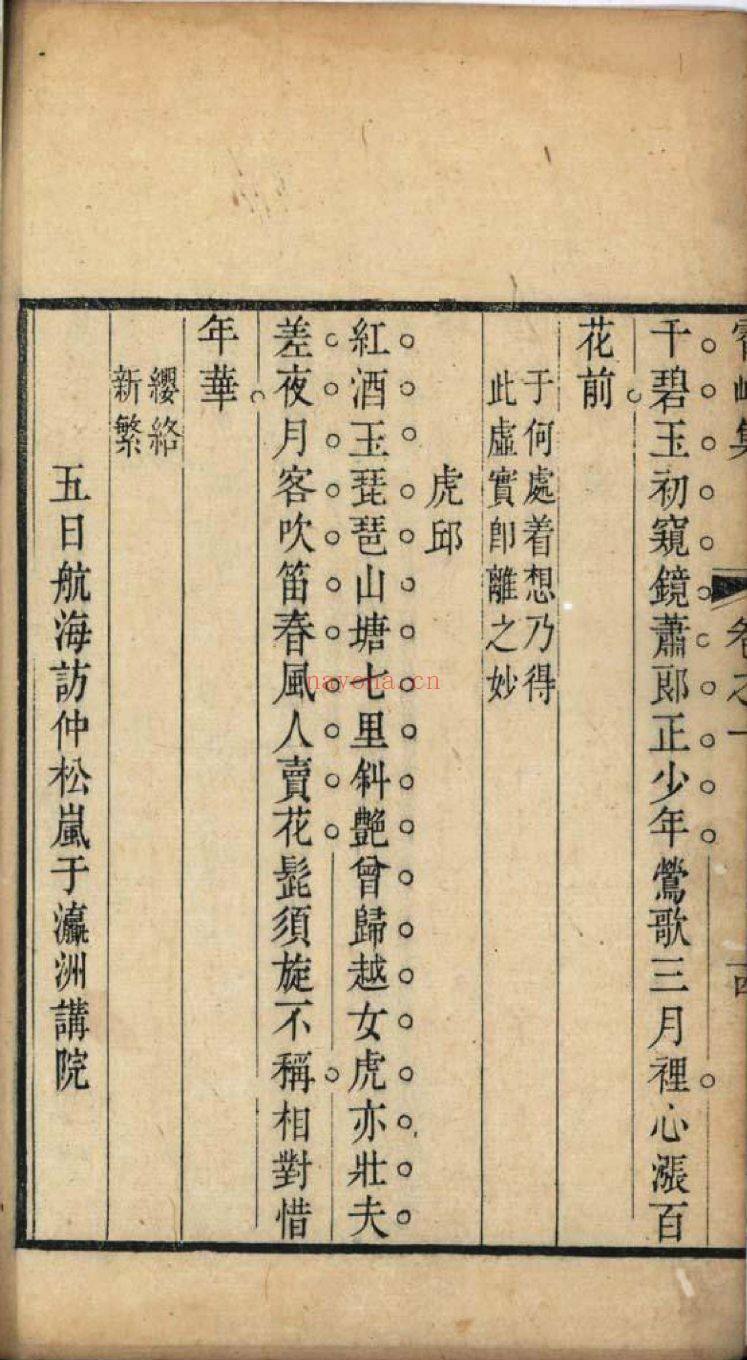 集 卷之一
干碧玉初窺鏡蕭郎正少年鶯歌三月裡心漲百
花前
于何處着想乃得
此虛實即離之妙
虎邱
紅酒玉琵琶山塘七里斜艶曾歸越女虎亦壯夫
差夜月客吹笛春風人賣花髭須旋不稱相對惜
年華
纓絡
新繁
五日航海訪仲松嵐于瀛洲講院
nayona.cn